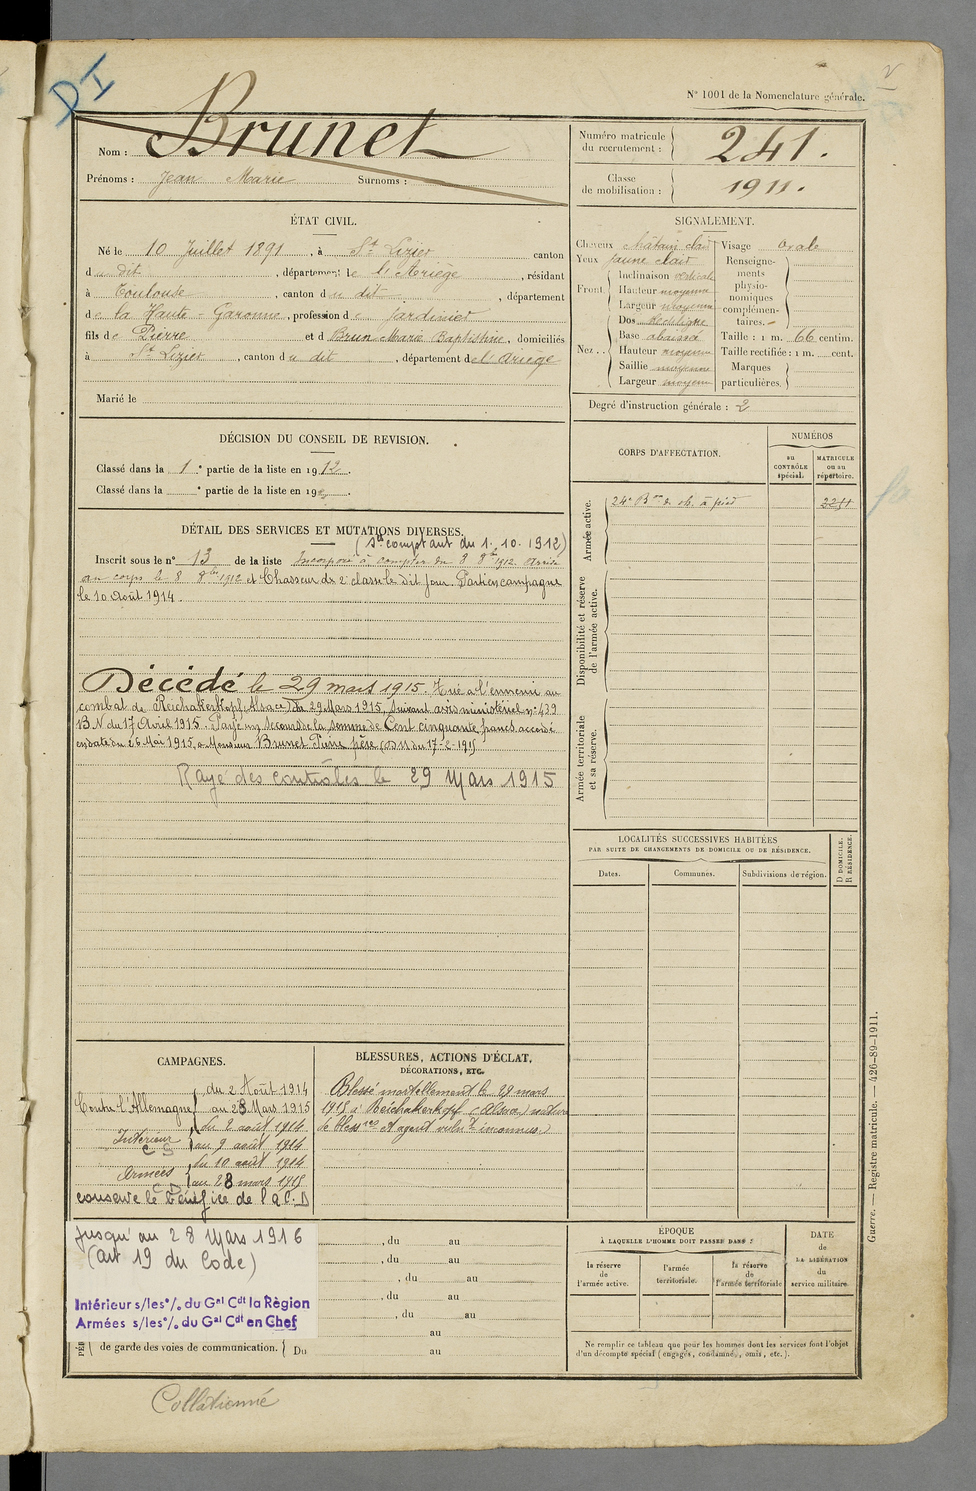 DI
N° 1001 de la Nomenclature générale.
Nom : Brunet
Prénoms : Jean Marie Surnoms :
Numéro matricule du recrutement : 241.
Classe de mobilisation : 1911.
ÉTAT CIVIL.
Né le 10 Juillet 1891, à St Lizier canton
du dit, département de l'Ariège, résidant
à Toulouse, canton du dit, département
de la Haute-Garonne, profession de jardinier
fils de Pierre et de Brun Marie Baptistine, domiciliés
à St Lizier, canton du dit, département de l'Ariège
Marié le
SIGNALEMENT.
Cheveux châtain clair
Yeux jaune clair
Front. Inclinaison verticale
Hauteur moyenne
Largeur moyenne
Nez.. Dos rectiligne
Base abaissée
Hauteur moyenne
Saillie moyenne
Largeur moyenne
Visage ovale
Renseignements physionomiques complémentaires. -
Taille : 1 m. 66 centim.
Taille rectifiée : 1 m. cent.
Marques particulières.
Degré d'instruction générale : 2
DÉCISION DU CONSEIL DE REVISION.
Classé dans la 1e partie de la liste en 1912.
Classé dans la e partie de la liste en 19
DÉTAIL DES SERVICES ET MUTATIONS DIVERSES.
(St comptant du 1. 10. 1912)
Inscrit sous le n° 13 de la liste Incorporé à compter du 8 8bre 1912. Arrivé
au corps le 8 8bre 1912 et Chasseur de 2e classe le dit jour. Parti en campagne
le 10 Août 1914.
Décédé le 29 mars 1915. Tué à l'ennemi au
combat de Reichakerkopf (Alsace) le 29 Mars 1915, suivant avis ministériel n° 439
B.N du 17 Avril 1915. Payé un secours de la somme de Cent cinquante francs accordé
en date du 26 Mai 1915, à Monsieur Brunet Pierre père (DM du 17-2-1915
Rayé des contrôles le 29 Mars 1915
CORPS D'AFFECTATION.
NUMÉROS
au CONTRÔLE spécial.
MATRICULE ou au répertoire.
Armée active.
24e Bon de ch. à pied 3241
Disponibilité et réserve de l'armée active.
Armée territoriale et sa réserve.
LOCALITÉS SUCCESSIVES HABITÉES
PAR SUITE DE CHANGEMENTS DE DOMICILE OU DE RÉSIDENCE.
Dates. Communes. Subdivisions de région. D DOMICILE. R RÉSIDENCE.
CAMPAGNES.
Contre l'Allemagne du 2 Août 1914
au 28 Mars 1915
Intérieur CS du 2 août 1914
au 9 août 1914
Armées du 10 août 1914
au 28 mars 1915
conserve le bénéfice de la C. D
jusqu'au 28 Mars 1916
(art 19 du Code)
Intérieur s/les°/. du Gal Cdt la Région
Armées s/les°/. du Gal Cdt en Chef
BLESSURES, ACTIONS D'ÉCLAT,
DÉCORATIONS, ETC.
Blessé mortellement le 29 mars
1915 à Reichakerkopf (Alsace) nature
de bless res et agent vuln t inconnus.)
, du au
, du au
, du au
, du au
, du au
au
de garde des voies de communication. Du au
ÉPOQUE
À LAQUELLE L'HOMME DOIT PASSER DANS :
la réserve de l'armée active.
l'armée territoriale.
la réserve de l'armée territoriale
DATE de LA LIBÉRATION du service militaire.
Ne remplir ce tableau que pour les hommes dont les services font l'objet
d'un décompte spécial (engagés, condamnés, omis, etc.).
Guerre. — Registre matricule. — 426-89-1911.
Collationné